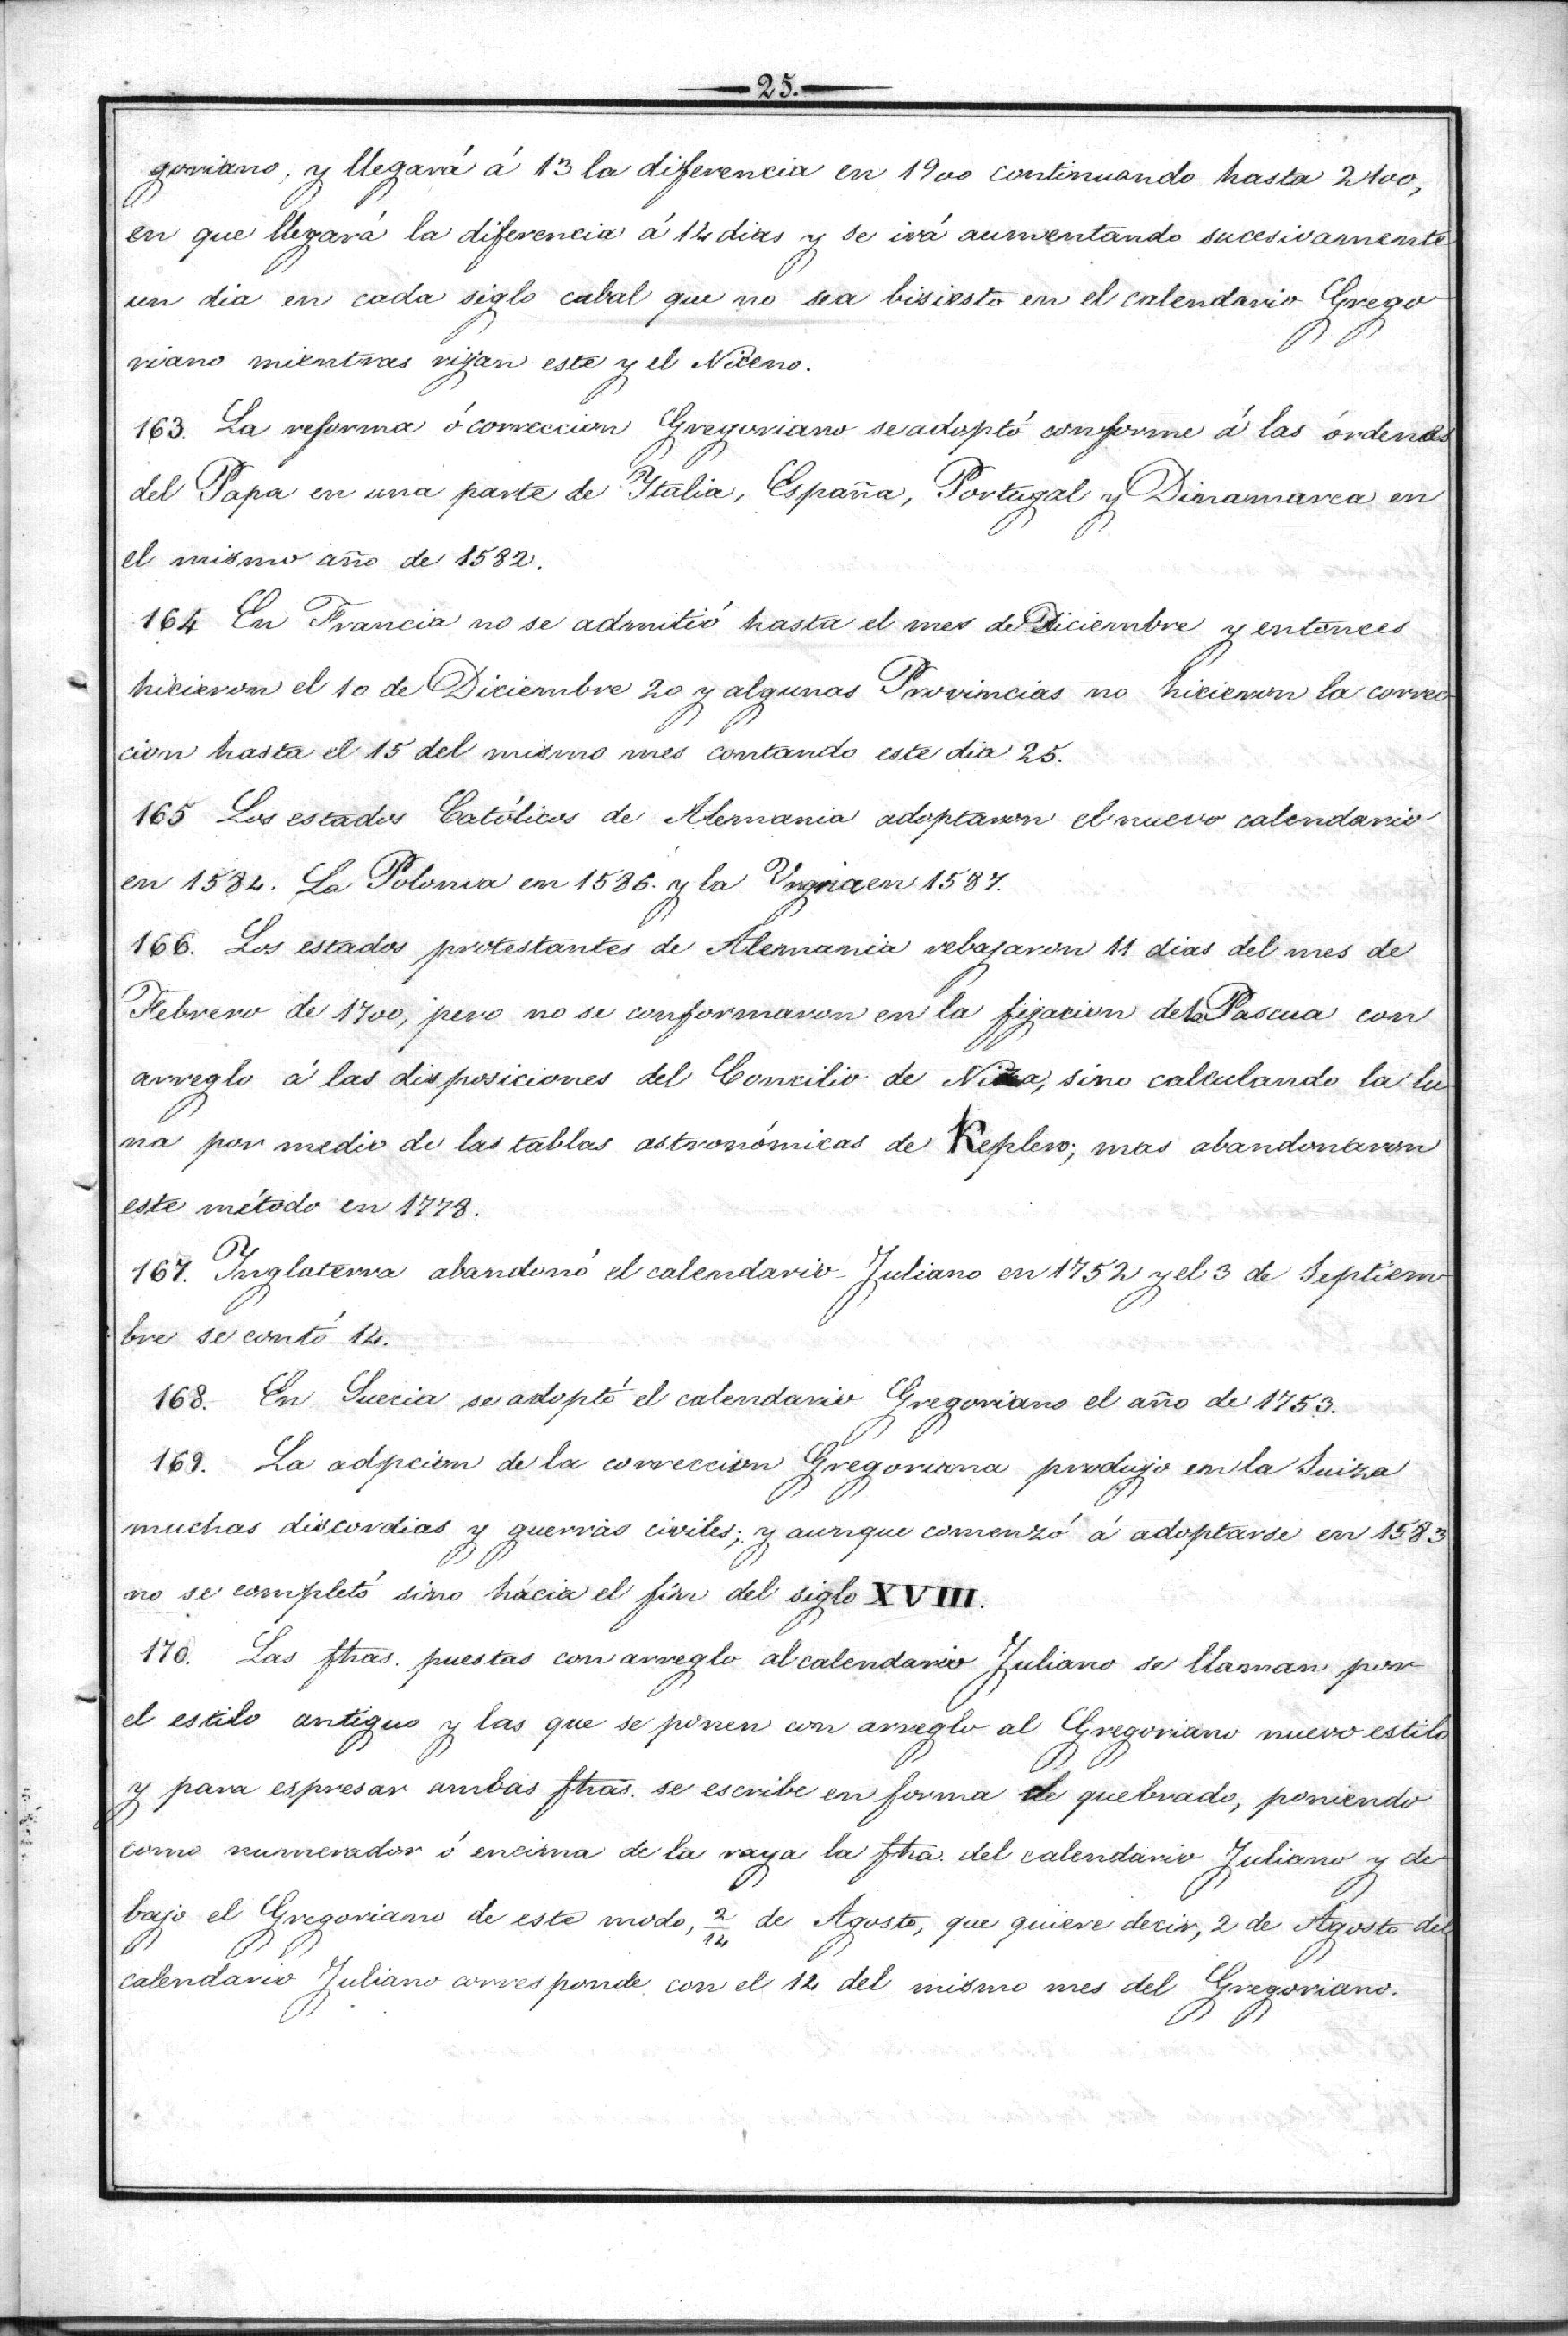 25.
goriano, y llegará á 13 la diferencia en 1900 continuando hasta 2100,
en que llegará la diferencia á 14 dias y se irá aumentando sucesivamente
un dia en cada siglo cabal que no sea bisiesto en el calendario Grego
riano mientras rijan este y el Niceno.
163. La reforma ó correccion Gregoriano se adoptó conforme á las órdenes
del Papa en una parte de Italia, España, Portugal y Dinamarca en
el mismo año de 1582.
164 En Francia no se admitió hasta el mes de Diciembre y entonces
hicieron el 10 de Diciembre 20 y algunas Provincias no hicieron la correc
cion hasta el 15 del mismo mes contando este dia 25.
165 Los estados Católicos de Alemania adoptaron el nuevo calendario
en 1584. La Polonia en 1586. y la Ungria en 1587.
166. Los estados protestantes de Alemania rebajaron 11 dias del mes de
Febrero de 1700, pero no se conformaron en la fijacion de la Pascua con
arreglo á las disposiciones del Concilio de Nicea, sino calculando la lu
na por medio de las tablas astronómicas de Keplero; mas abandonaron
este método en 1778.
167. Inglaterra abandonó el calendario Juliano en 1752 y el 3 de Septiem
bre se contó 14.
168. En Suecia se adoptó el calendario Gregoriano el año de 1753.
169. La adpcion de la correccion Gregoriana produjo en la Suiza
muchas discordias y guerras civiles; y aunque comenzó á adoptarse en 1583
no se completó sino hácia el fin del siglo XVIII.
170. Las fhas. puestas con arreglo al calendario Juliano se llaman por
el estilo antiguo y las que se ponen con arreglo al Gregoriano nuevo estilo
y para espresar ambas fhas. se escribe en forma de quebrado, poniendo
como numerador ó encima de la raya la fha. del calendario Juliano y de
bajo el Gregoriano de este modo, 2/14 de Agosto, que quiere decir, 2 de Agosto del
calendario Juliano corresponde con el 14 del mismo mes del Gregoriano.